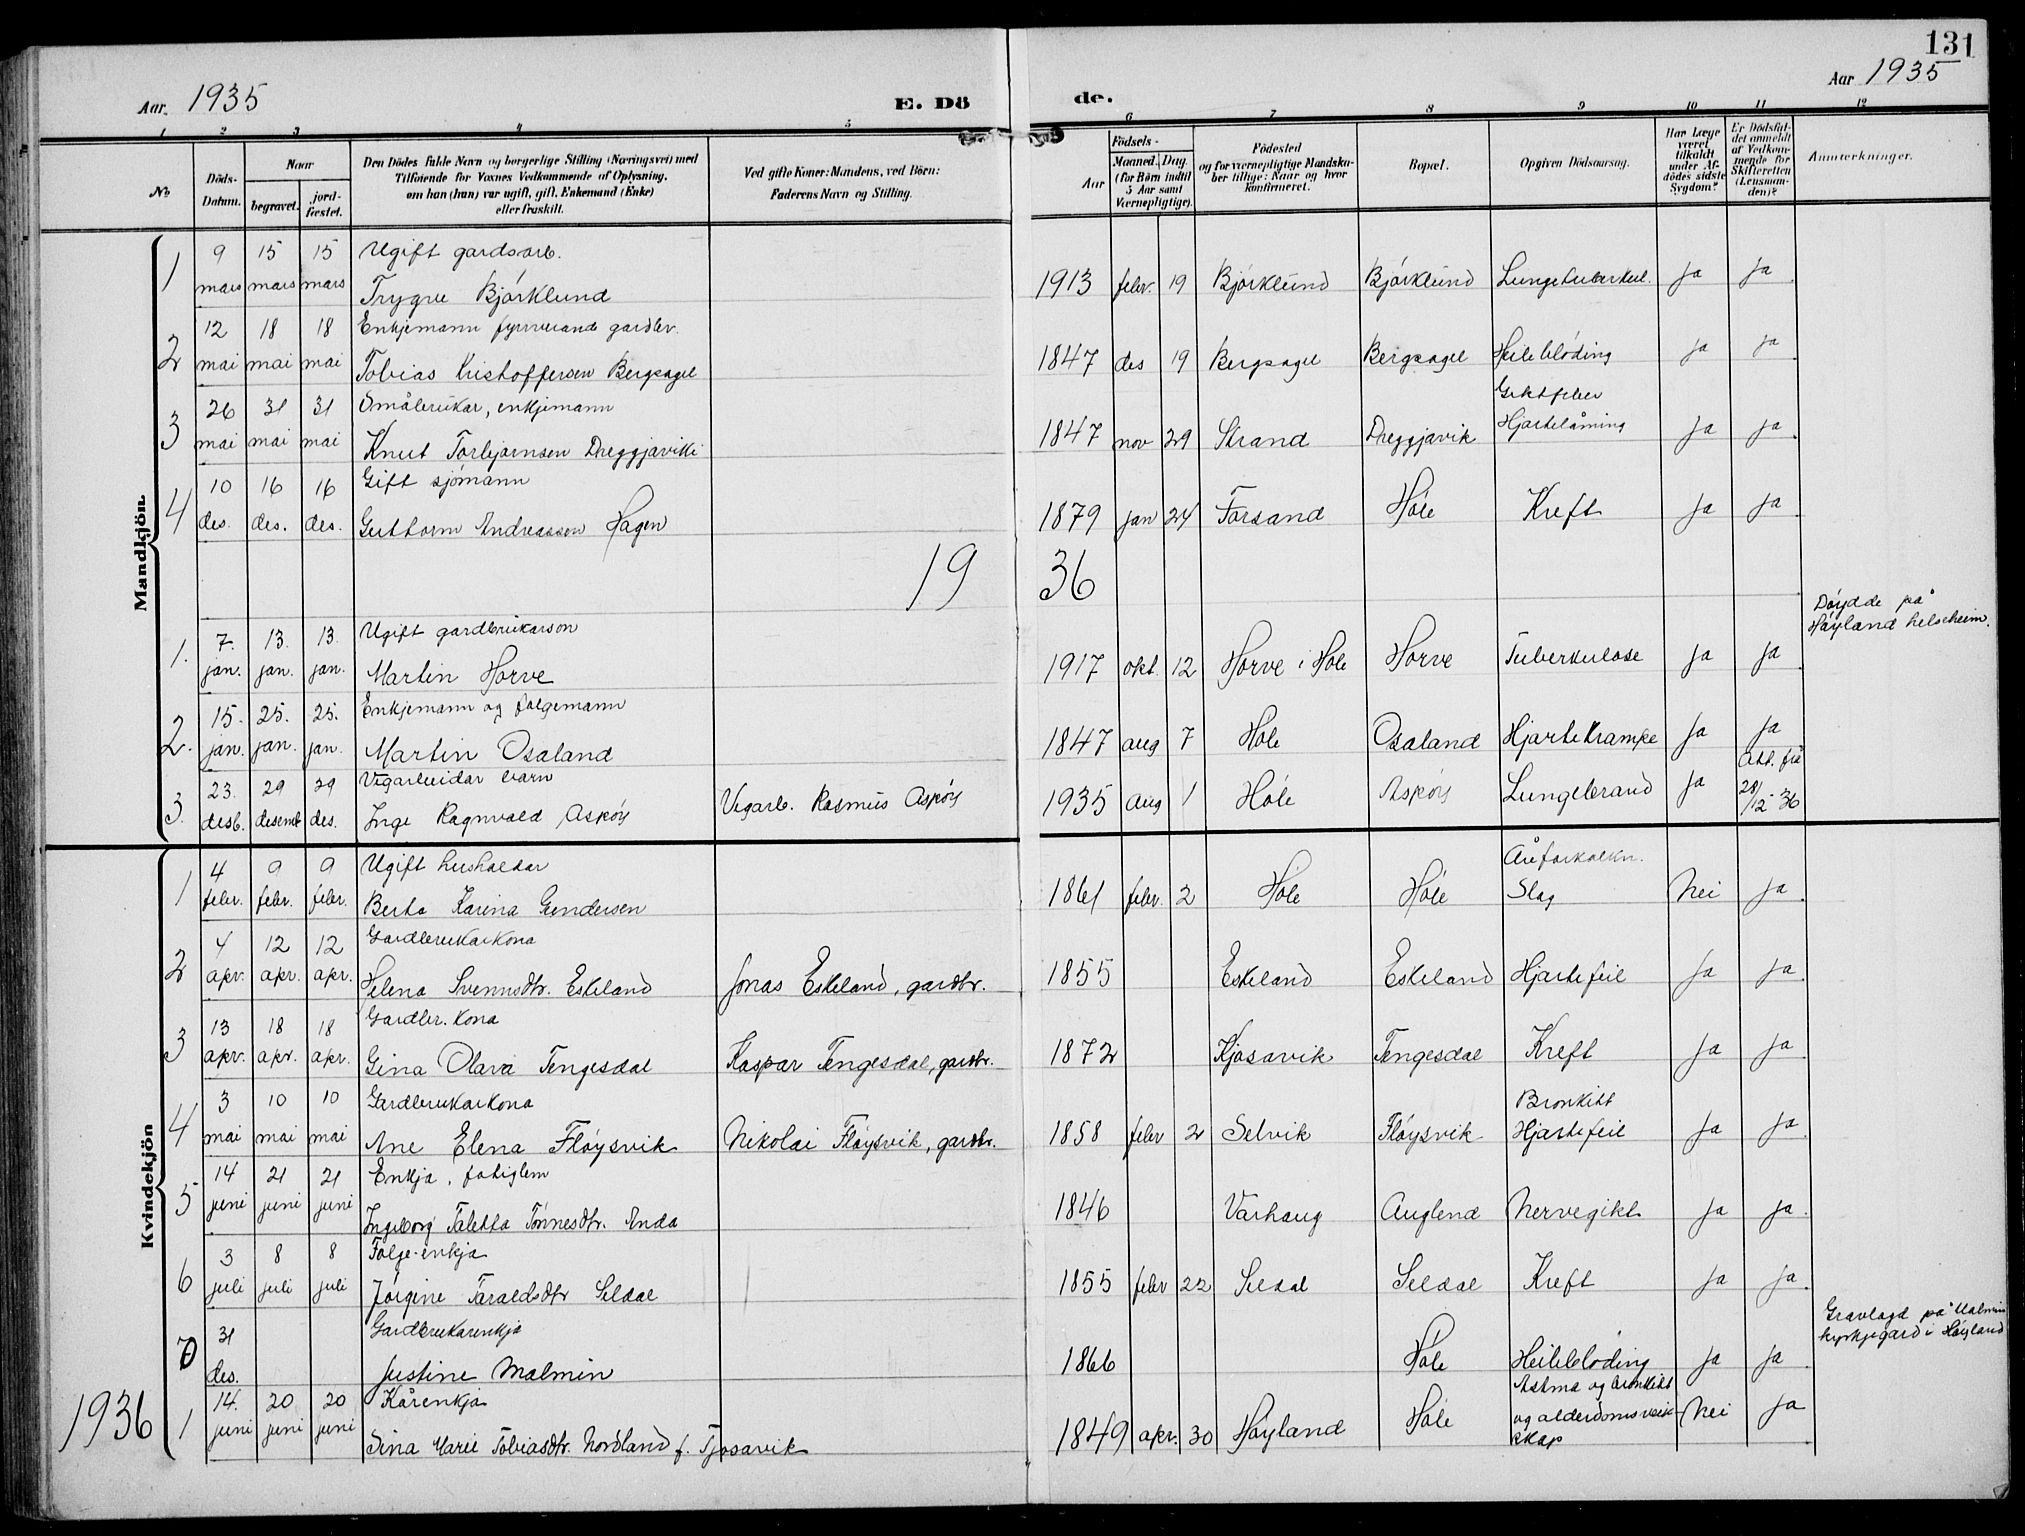 131
Aar 1935
E. Dö
de.
Aar 1935
1 2 3 4 5 6 7 8 9 10 11 12
No
Döds-Datum.
Naar
begravet.
jord-fæstet.
Den Dödes fulde Navn og borgerlige Stilling (Næringsvei) med
Tilföiende for Voxnes Vedkommende af Oplysning,
om han (hun) var ugift, gift, Enkemand (Enke)
eller fraskilt.
Ved gifte Koner: Mandens, ved Börn:
Faderens Navn og Stilling.
Födsels-
Aar
Maaned. Dag.
(for Börn indtil
5 Aar samt
Værnepligtige).
Födested
og for værnepligtige Mandska-
ber tillige: Naar og hvor
konfirmeret.
Bopæl.
Opgiven Dödsaarsag.
Har Læge
været
tilkaldt
under Af-
dödes sidste
Sygdom?
Er Dödsfal-
det anmeldt
af Vedkom-
mende for
Skifteretten
(Lensman-
den)?
Anmerkninger.
Mandkjön
1 9 mars 15 mars 15 mars Ugift gardsarb.
Trygve Björklund 1913 febr. 19 Björklund Björklund Lungetuberkul. Ja Ja
2 12 mai 18 mai 18 mai Enkjemann fyrrverande gardbr.
Tobias Kristoffersen Bergsagel 1847 des 19 Bergsagel Bergsagel Heileblöding Ja Ja
3 26 mai 31 mai 31 mai Småbrukar, enkjemann Giktfeber
Knut Torbjørnsen Dreggjavik 1847 nov 29 Strand Dreggjavik Hjartelåming Ja Ja
4 10 des. 16 des. 16 des. Gift sjömann
Guttorm Andreassen Hagen 1879 jan 24 Forsand Höle Kreft Ja Ja
1936
1. 7. jan. 13. jan. 13. jan. Ugift gardbrukarson Döydde på Höyland helseheim.
Martin Horve 1917 okt. 12 Horve i Höle Horve Tuberkulose Ja Ja
2. 15. jan. 25. jan. 25. jan. Enkjemann og folgemann
Martin Osaland 1847 aug 7 Höle Osaland Hjartekrampe Ja Ja
3. 23. desb. 29 desemb 29 des. Vegarbeidar barn
Inge Ragnvald Aspöy Vegarb. Rasmus Aspöy 1935 Aug 1 Höle Aspöy Lungebrand Ja Att. frå 28/12-36
Kvindekjön
1 4 febr. 9 febr. 9 febr. Ugift husholdar Åreforkalkn.
Berta Karina Gundersen 1861 febr. 2 Höle Höle Slag Nei Ja
2 4 apr. 12 apr. 12 apr. Gardbrukarkona
Helena Svennsdtr. Eskeland Jonas Eskeland, gardbr. 1855 Eskeland Eskeland Hjartefeil Ja Ja
3 13 apr. 18 apr. 18 apr. Gardbr. kona
Gina Olava Tengesdal Kaspar Tengesdal, gardbr. 1872 Kjosavik Tengesdal Kreft Ja Ja
4 3 mai 10 mai 10 mai Gardbrukarkona Bronkitt
Ane Elena Flöysvik Nikolai Flöysvik, gardbr. 1858 febr 2 Selvik Flöysvik Hjartefeil Ja Ja
5 14 juni 21 juni 21 juni Enkja, fatiglem
Ingeborg Taletta Tönnesdtr. Anda 1846 Varhaug Auglend Nervegikt Ja Ja
6 3 juli 8 juli 8 juli Folge-enkja
Jörgine Taraldsdtr Seldal 1855 febr 22 Seldal Seldal Kreft Ja Ja
7 31 des. Gardbrukarenkja Gravlagd på Malmin kyrkjegard i Höyland
Justine Malmin 1866 Höle Heileblöding Ja Ja
1936 1 14. juni 20 juni 20 juni Kårenkja
Sina Marie Tobiasdtr. Nordland f. Tjosavik 1849 apr. 30 Höyland Höle Astma og bronkitt og alderdomsveikskap Nei Ja